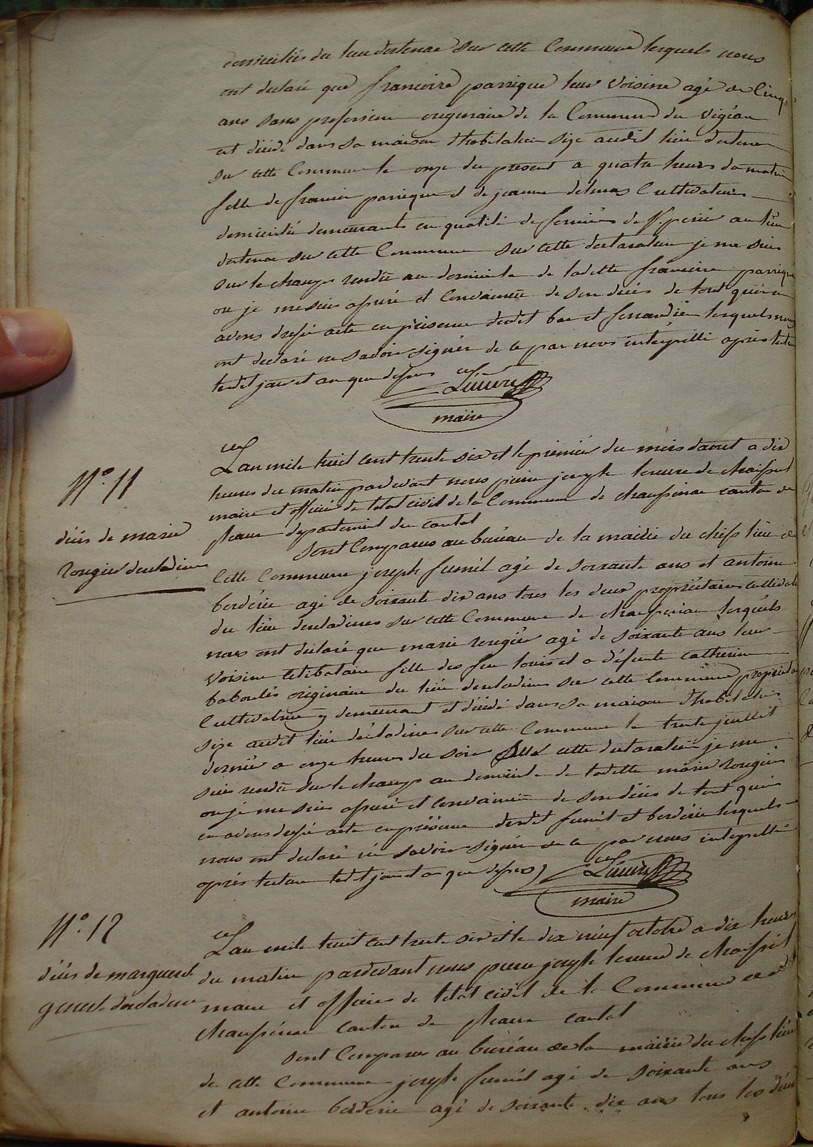 domiciliés du lieu destenac sur cette Commune lesquels nous
ont declaré que francoise parrique leur voisine agé de Cinq
ans sans profession originaire de la Commune du vigean
est décédé dans sa maison d'habitation size audit lieu destenac
sur cette Commune le onze du present a quatre heurs du matin
fille de francois parrique et de jeanne delmas Cultivateurs
domicilié demeurants en qualité de fermiers de au lieu
destenac sur cette Commune sur cette declaration je me suis
sur le champs rendu au domicile de ladite francoise parrique
ou je me suis assuré et Convaincu de son décés de tout quoi en
avons dressé acte en présence dudit et lesquels nous
ont declaré ne savoir signér de ce par nous interpellé après lecture
ledit jour et an que dessus
maire
N°. 11
décés de marie
rougier desladines
L'an mile huit cent trente six et le premier du mois daout a dix
heures du matin pardevant nous pierre joseph de
maire et officier de letat civil de la Commune de chaussenac canton de
pleaux departement du cantal
Sont Comparus au bureau de la mairie du chef lieu de
Cette Commune joseph fumél agé de soixante ans et antoine
bordérie agé de soixante dix ans tous les deux propriétaires cultivateurs
du lieu desladines sur cette Commune de chaussenac lesquels
nous ont declaré que marie rougier agé de soixante ans leur
voisine celibataire fille des feu louis et a défunte catherine
originaire du lieu desladines sur cette Commune propriétaire
Cultivatrice y demeurant est décédé dans sa maison d'habitation
size audit lieu desladines sur cette Commune le trente juillet
dernier a onze heures du soir cette declaration je me
suis rendu sur le champs au domicile de ladite marie rougier
ou je me suis assuré et Convaincu de son décés de tout quoi
en avons dressé acte en présence dudit fumél et bordérie lesquels
nous ont declaré ne savoir signér de ce par nous interpellé
après lecture ledit jour et an que dessus
maire
N°. 12
décés de marguerite
desladines
L'an mile huit cent trente six et le dix neuf octobre a dix heures
du matin pardevant nous pierre joseph de
maire et officier de letat civil de la Commune de
chaussenac canton de pleaux cantal
Sont Comparus au bureau de la mairie du chef lieu
de cette Commune joseph fumél agé de soixante ans
et antoine bordérie agé de soixante dix ans tous les deux